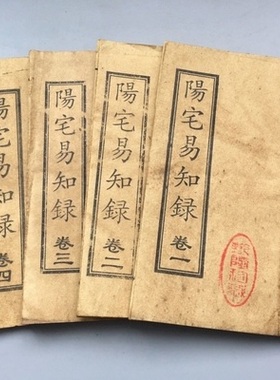 陽宅易知録 卷一
陽宅易知録 卷二
陽宅易知録 卷三
宅易知録 卷四